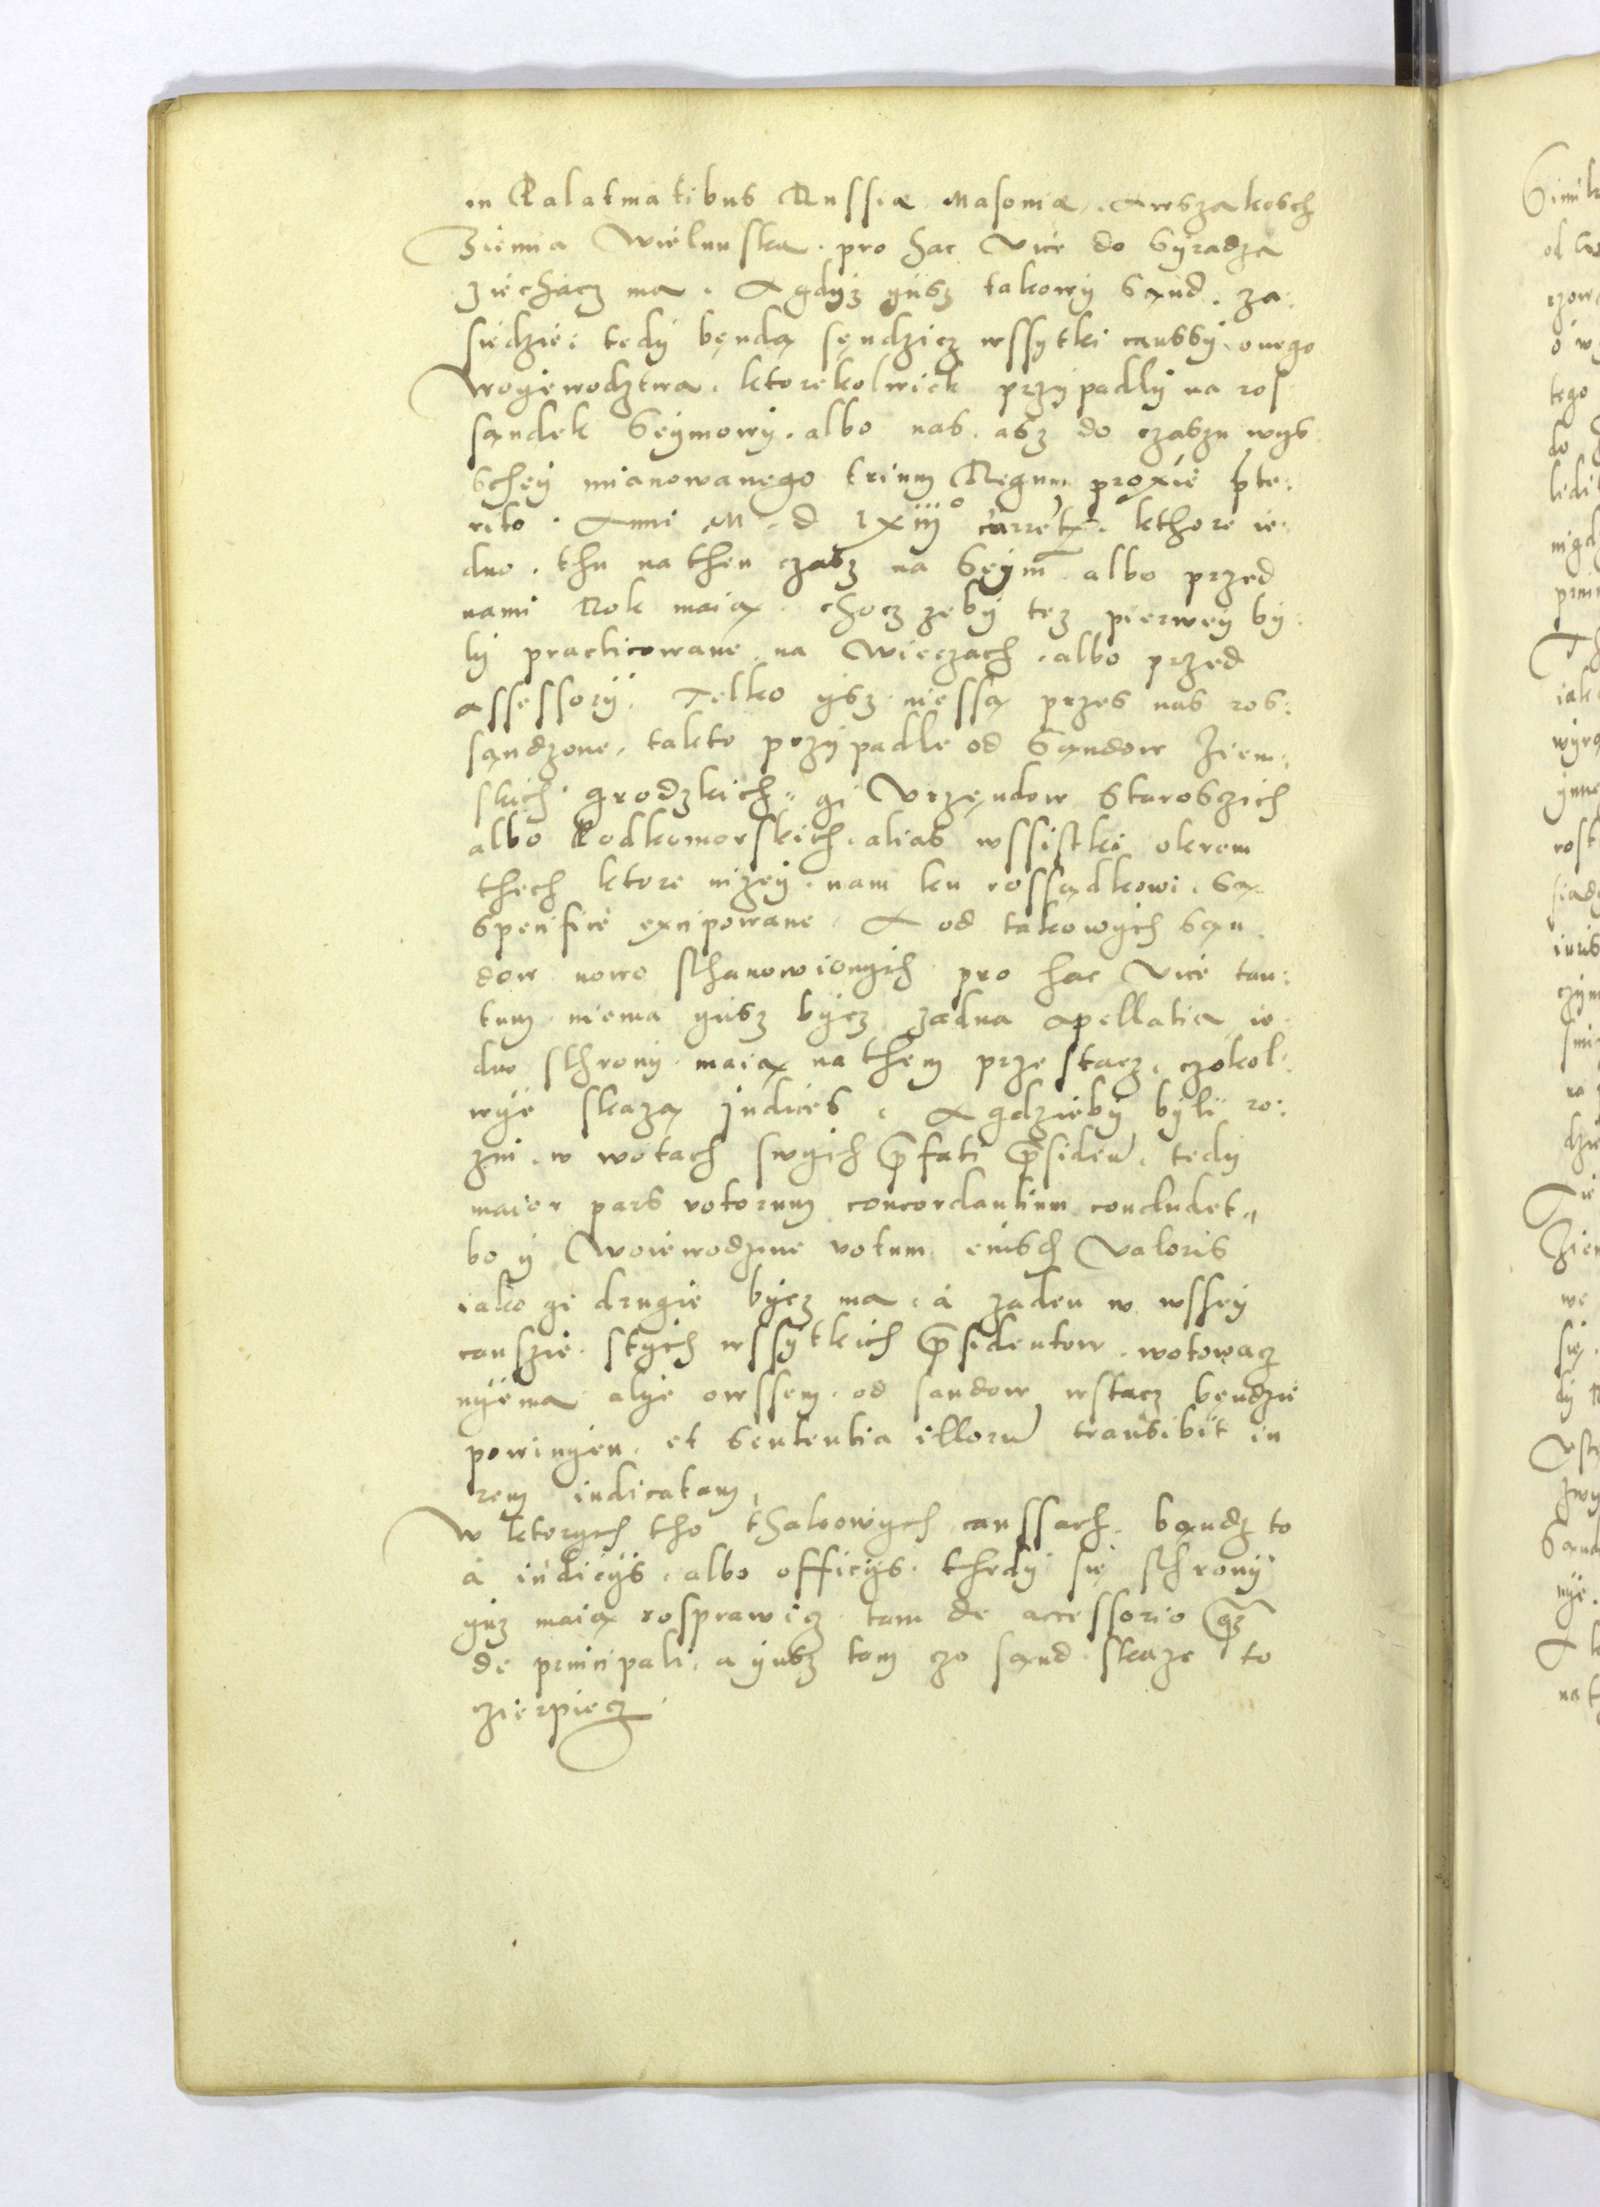 in Palatinatibus Russiæ Masoviæ. Awszakosch
Ziemia Wielunska. pro hac vice do Syradza
ziechacz ma. A gdyz yusz takowy Sąnd. za:
siedzie: tedy będą sęndzicz wssytki caussy. onego
Woyewodztwa. ktorekolwiek przypadly na ros
sąndek Seymowy. albo nas. asz do czaszu wys
schey mianowanego trium Regum proxie pte:
rito. Anni M. d lxiiij° curretꝭ. kthore ie:
dno. thu na then czasz na Seym albo przed
nami Rok maią. chocz zeby tez pierwey by:
ly practicowane. na Wieczach. albo przed
assessory. Telko ysz niessą przes nas ros:
sąndzone. takto przypadle od Sąndow Ziem:
skich grodzkich. y Vrzęndow Staroszich
albo Podkomorskich. alias wssistki okrom
thech ktore nizey. nam ku rossądkowi. Są
specifice excipowane. A od takowych Sąn
dow nowo sthanowionych pro hac vice tan:
tum niema yusz bycz zadna apellatia ie
dno sthrony maią na them przestacz. czokol:
wye skazą judices. A gdzieby byli ro:
zni. w wotach swych pfati psiden. tedy
maior pars votorum concordantium concludet,
bo y Woiewodzine votum eiusd valoris
iako ye drugie bycz ma. a zaden w wssey
causzie. stych wssytkich psidentow. wotowacz
nyema alye owssem. od sandow wstacz bęndzie
powinyen. et sententia illoru transibit in
rem iudicatam,
W ktorych tho thakowych caussach. bąndz to
a iudicijs. albo officijs. thedy się sthrony
yuz maią rosprawicz tam de accessorio qz
de principali. a yusz tem czo sąnd skaze to
czierpiecz.